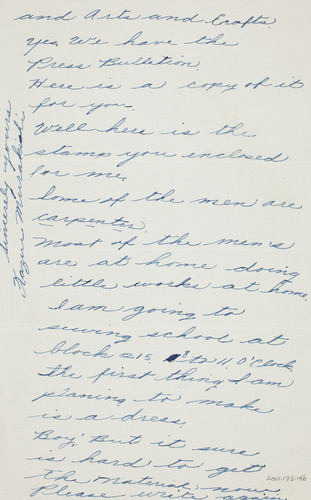 and Arts and Crafts.
Yes, We have the
Press Bulletion.
Here is a copy of it
for you.
Well here is the
stamp you enclosed
for me.
Some of the men are
carpenter.
Most of the men's
are at home doing
little works at home.
I am going to
sewing school at
block 215. 8 to 11. O'Clock
The first thing I am
planing to make
is a dress.
Boy! But it sure
is hard to get
the material now
Please write again
Sincerely yours
Murakami
2001.175.146